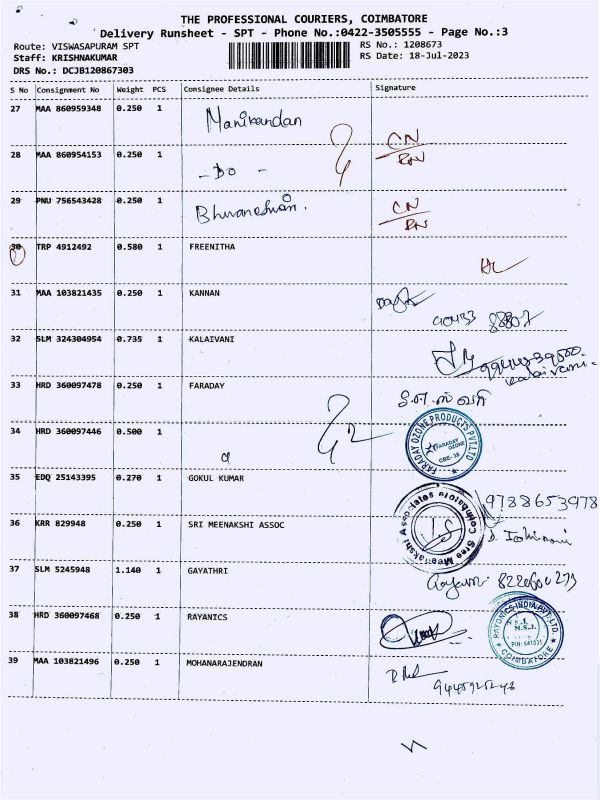 THE PROFESSIONAL COURIERS, COIMBATORE
Delivery Runsheet - SPT - Phone No.:0422-3505555 - Page No.:3
Route: VISWASAPURAM SPT RS No.: 1208673
Staff: KRISHNAKUMAR RS Date: 18-Jul-2023
DRS No.: DCJB120867303
S No Consignment No Weight PCS Consignee Details Signature
27 MAA 860959348 0.250 1 Manikandan CN/RN
28 MAA 860954153 0.250 1 - Do -
29 PNU 756543428 0.250 1 CN/RN
30 TRP 4912492 0.580 1 FREENITHA
31 MAA 103821435 0.250 1 KANNAN
32 SLM 324304954 0.735 1 KALAIVANI
33 HRD 360097478 0.250 1 FARADAY
34 HRD 360097446 0.500 1 FARADAY OZONE PRODUCTS PVT LTD FARADAY OZONE CBE-35
35 EDQ 25143395 0.270 1 GOKUL KUMAR 9788653978
36 KRR 829948 0.250 1 SRI MEENAKSHI ASSOC Sree Meenakshi Associates Coimbatore
37 SLM 5245948 1.140 1 GAYATHRI
38 HRD 360097468 0.250 1 RAYANICS RAYONICS INDIA PVT. LTD. COIMBATORE
39 MAA 103821496 0.250 1 MOHANARAJENDRAN